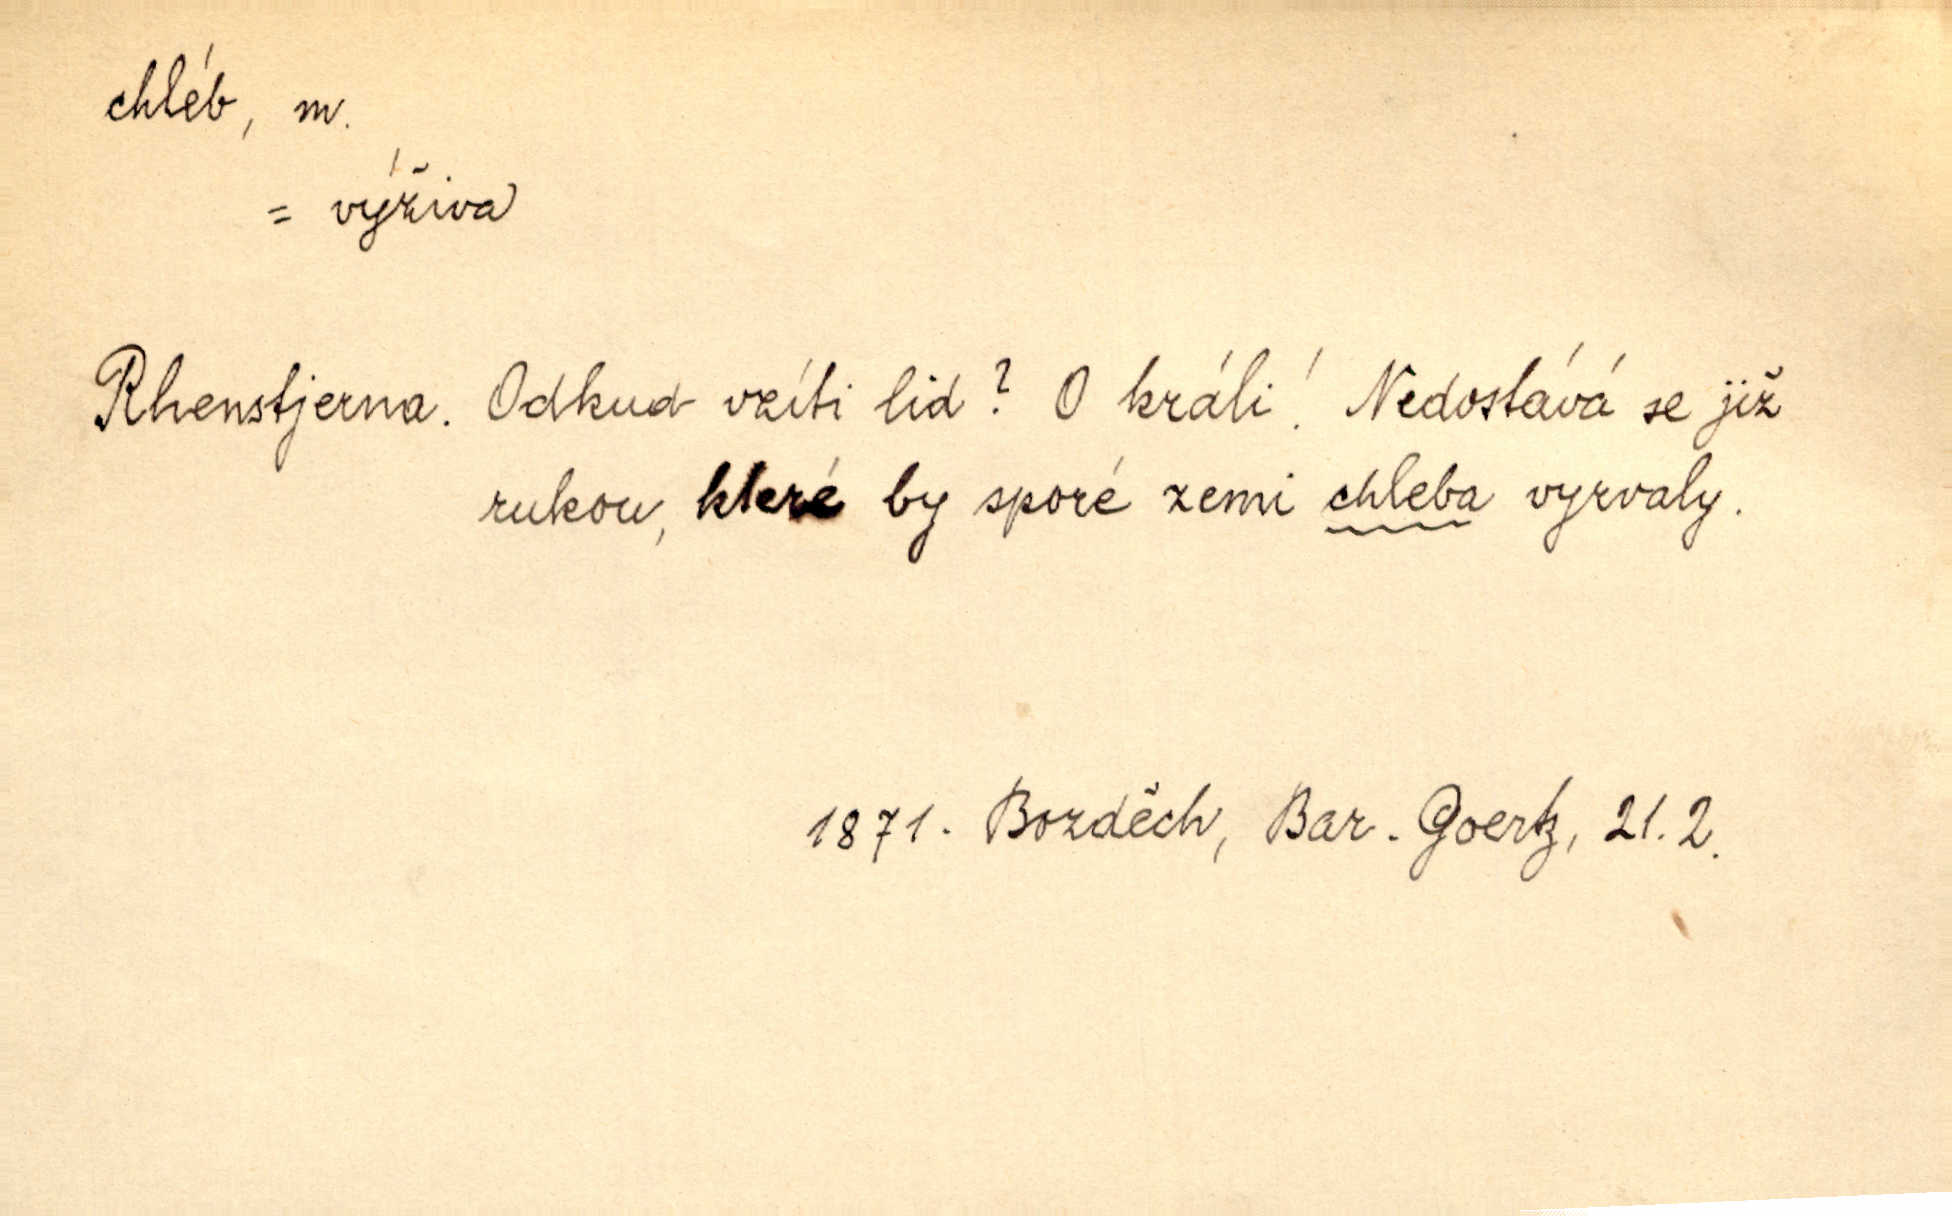 chléb, m.
= výživa
Rhenstjerna. Odkud vzíti lid? O králi! Nedostává se již
rukou, které by sporé zemi chleba vyrvaly.
1871. Bozděch, Bar. Goertz, 21.2.